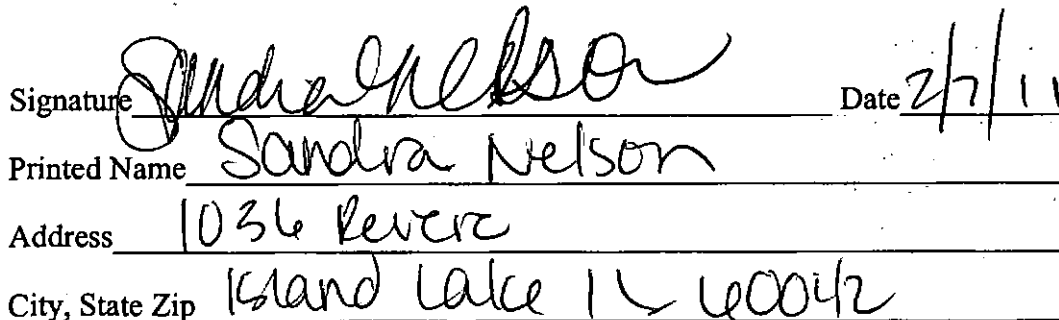 Signature Sandra Nelson Date 2/7/11
Printed Name Sandra Nelson
Address 1036 Revere
City, State Zip Island Lake IL 60042